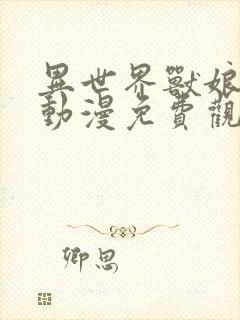 異世界獸娘
動漫免費觀
卿思